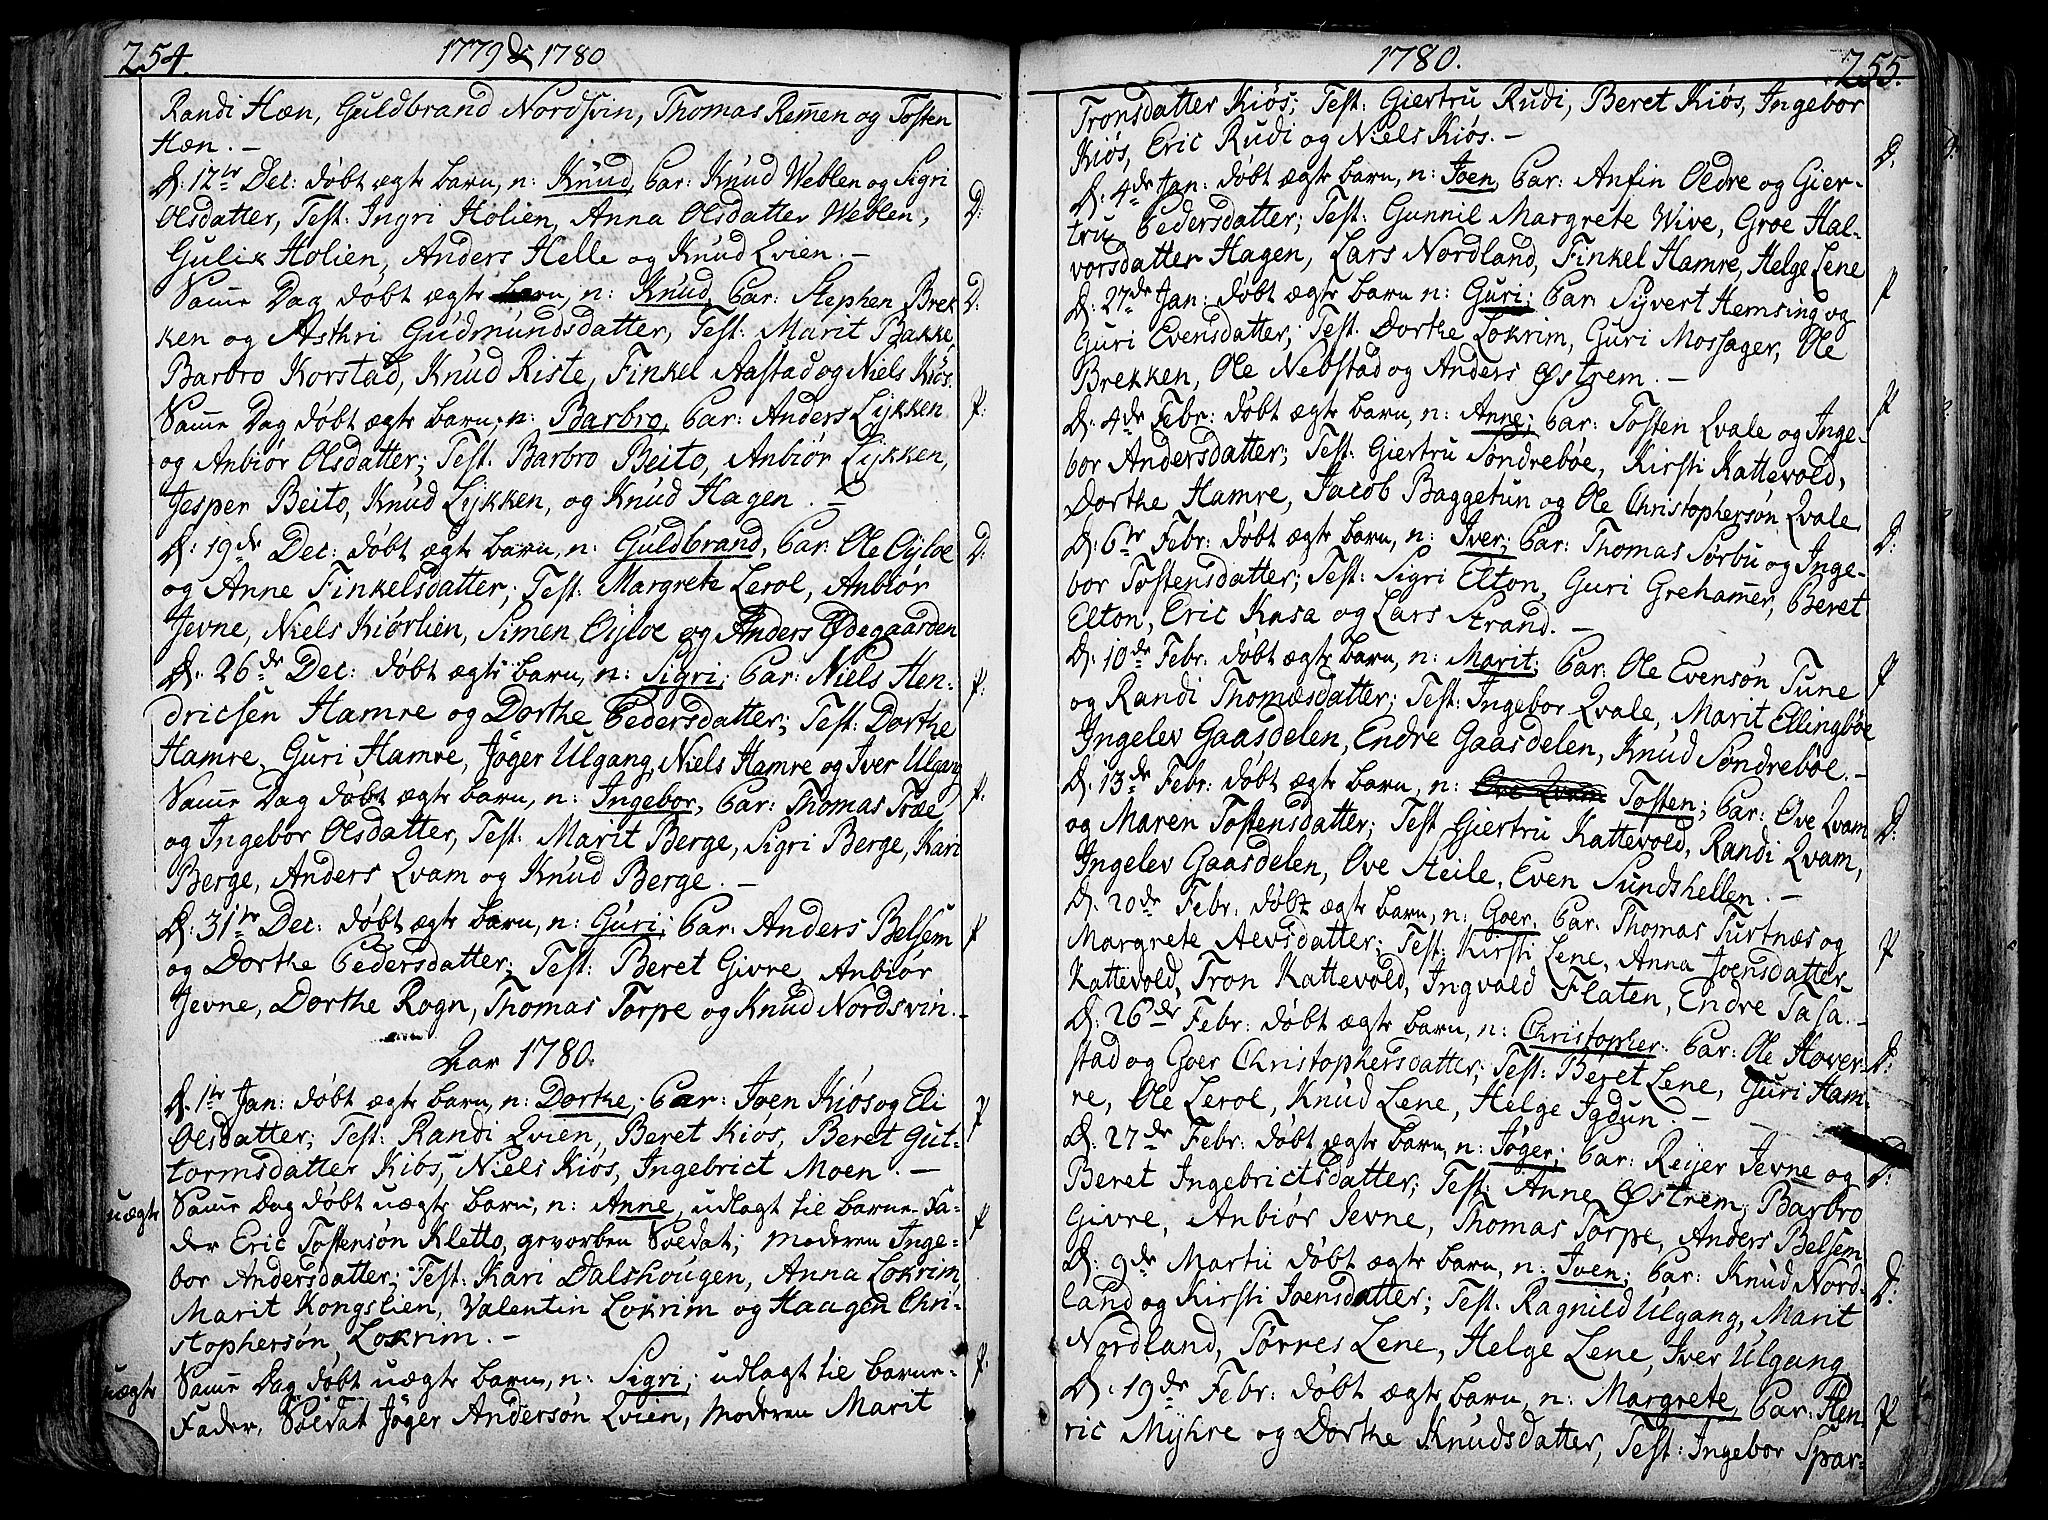 254.
1779 & 1780
Randi Hæn, Guldbrand Nordsvin, Thomas Remen og Tosten
Hæn. –
D: 12te Dec: döbt ægte barn, n: Knud, Par: Knud Weblen og Sigri
Olsdatter, Test: Ingri Holien, Anna Olsdatter Weblen,
Gulik Holien, Anders Helle og Knud Qvien. –
D:
Samme Dag döbt ægte barn, n: Knud, Par: Stephen Brek
ken og Asthri Gudmundsdatter, Test: Marit Bakke,
Barbro Korstad, Knud Riste, Finkel Aastad og Niels Kiös.
D:
Samme Dag döbt ægte barn, n: Barbro, Par: Anders Lykken
og Anbiör Olsdatter; Test: Barbro Beito, Anbiör Lykken,
Jesper Beito, Knud Lykken, og Knud Hagen. –
P:
D: 19de Dec: döbt ægte barn, n: Guldbrand, Par: Ole Öyloe
og Anne Finkelsdatter; Test: Margrete Lerol, Anbiör
Jevne, Niels Kiörlien, Simen Öyloe og Anders Ödegaarden
D:
D: 26de Dec: döbt ægte barn, n: Sigri, Par: Niels Hen-
dricsen Hamre og Dorthe Pedersdatter; Test: Dorthe
Hamre, Guri Hamre, Jöger Ulgang, Niels Hamre og Iver Ulgang
P:
Samme Dag döbt ægte barn, n: Ingebor, Par: Thomas Træe
og Ingebor Olsdatter, Test: Marit Berge, Sigri Berge, Kari
Berge, Anders Qvam og Knud Berge. –
P:
D: 31te Dec: döbt ægte barn, n: Guri; Par: Anders Belsem
og Dorthe Pedersdatter; Test: Beret Givre, Anbiör
Jevne, Dorthe Rogn, Thomas Torpe og Knud Nordsvin. –
P
Aar 1780.
D. 1te Jan: döbt ægte barn, n: Dorthe, Par: Joen Kiös og Eli
Olsdatter; Test: Randi Qvien, Beret Kiös, Beret Gut-
tormsdatter Kiös, Niels Kiös, Ingebrict Moen. –
P
uægte
Samme Dag döbt uægte barn, n: Anne, udlagt til barne-Fa-
der Eric Tostensön Kletto, gevorben Soldat; Moderen Inge-
bor Andersdatter; Test: Kari Dalshougen, Anna Lokrim,
Marit Kongslien, Valentin Lokrim og Haagen Chri-
stophersön Lokrim. –
P
uægte
Samme Dag döbt uægte barn, n: Sigri, udlagt til barne-
Fader, Soldat Jöger Andersön Qvien, Moderen Marit
P.
1780.
255.
Tronsdatter Kiös; Test: Giertru Rudi, Beret Kiös, Ingebor
Kiös, Eric Rudi og Niels Kiös. –
D: 4de Jan: döbt ægte barn, n: Joen, Par: Anfin Oldre og Gier-
tru Pedersdatter; Test: Gunnil Margrete Wive, Groe Hal-
vorsdatter Hagen, Lars Nordland, Finkel Hamre, Helge Lene
D.
D: 27de Jan: döbt ægte barn n: Guri; Par: Syvert Hemsing og
Guri Evensdatter; Test. Dorthe Lokrim, Guri Mossager, Ole
Brekken, Ole Nebstad og Anders Östrem. –
P
D: 4de Febr: döbt ægte barn, n: Anne; Par: Tosten Qvale og Inge-
bor Andersdatter; Test: Giertru Söndreböe, Kirsti Kattevold,
Dorthe Hamre, Jacob Baggetun og Ole Christophersön Qvale
P
D: 6te Febr: döbt ægte barn, n: Iver; Par: Thomas Sörbu og Inge-
bor Tostensdatter; Test: Sigri Elton, Guri Grehamer, Beret
Elton, Eric Kasa og Lars Strand. –
D:
D: 10de Febr: döbt ægte barn, n: Marit; Par: Ole Evensön Tune
og Randi Thomæsdatter; Test: Ingebor Qvale, Marit Ellingböe
Ingelev Gaasdelen, Endre Gaasdelen, Knud Söndreböe. –
P
D: 13de Febr: döbt ægte barn, n: Ove Qvam Tosten; Par: Ove Qvam
og Maren Tostensdatter; Test Giertru Kattevold, Randi Qvam,
Ingelev Gaasdelen, Ove Steile, Even Sundshellen. –
D:
D. 20de Febr: döbt ægte barn, n: Goer, Par: Thomas Turtnæs og
Margrete Aevsdatter; Test: Kirsti Lene, Anna Joensdatter
Kattevold, Tron Kattevold, Ingvald Flaten, Endre Tasa. –
P
D: 26de Febr: döbt ægte barn, n: Christopher. Par: Ole Hover-
stad og Goer Christophersdatter; Test: Beret Lene, Guri Ham-
re, Ole Lerol, Knud Lene, Helge Igdun. –
D:
D: 27de Febr: döbt ægte barn, n: Jöger; Par: Reijer Jevne og
Beret Ingebrictsdatter; Test: Anne Östrem, Barbro
Givre, Anbiör Jevne, Thomas Torpe, Anders Belsem
D:
D: 9de Martii döbt ægte barn, n: Joen; Par: Knud Nord-
land og Kirsti Joensdatter; Test: Ragnild Ulgang, Marit
Nordland, Törres Lene, Helge Lene, Iver Ulgang
D:
D: 19de Febr: döbt ægte barn, n: Margrete, Par: Hen-
ric Myhre og Dorthe Knudsdatter, Test: Ingebor Spar-
P